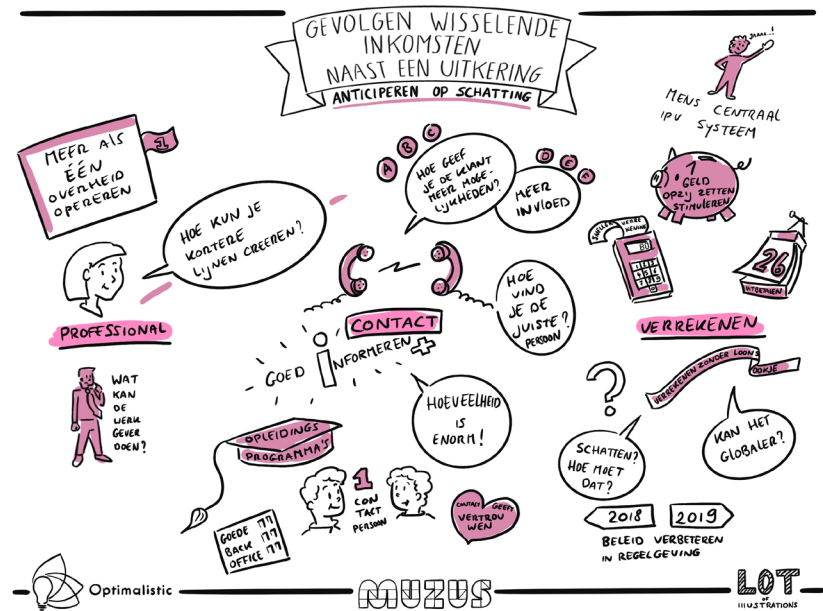 GEVOLGEN WISSELENDE
INKOMSTEN
NAAST EEN UITKERING
ANTICIPEREN OP SCHATTING
MENS CENTRAAL
IPV SYSTEEM
MEER ALS
ÉÉN
OVERHEID
OPEREREN
1
HOE KUN JE
KORTERE
LIJNEN CREËREN?
PROFESSIONAL
WAT
KAN
DE
WERK
GEVER
DOEN?
A B C
HOE GEEF
JE DE KLANT
MEER MOGE-
LIJKHEDEN?
D E F
MEER
INVLOED
HOE
VIND
JE DE
JUISTE?
PERSOON
CONTACT
GOED INFORMEREN
HOEVEELHEID
IS
ENORM!
OPLEIDINGS
PROGRAMMA'S
GOEDE
BACK
OFFICE
1
CON
TACT
PERSOON
CONTACT GEEFT
VERTROU
WEN
1
GELD
OPZIJ ZETTEN
STIMULEREN
SNELLERE VERRE
KENING
80
26
UITBETALEN
VERREKENEN
VERREKENEN ZONDER LOONS
OOKJE
?
SCHATTEN?
HOE MOET
DAT?
KAN HET
GLOBALER?
2018 2019
BELEID VERBETEREN
IN REGELGEVING
Optimalistic
MUZUS
LOT
OF
ILLUSTRATIONS